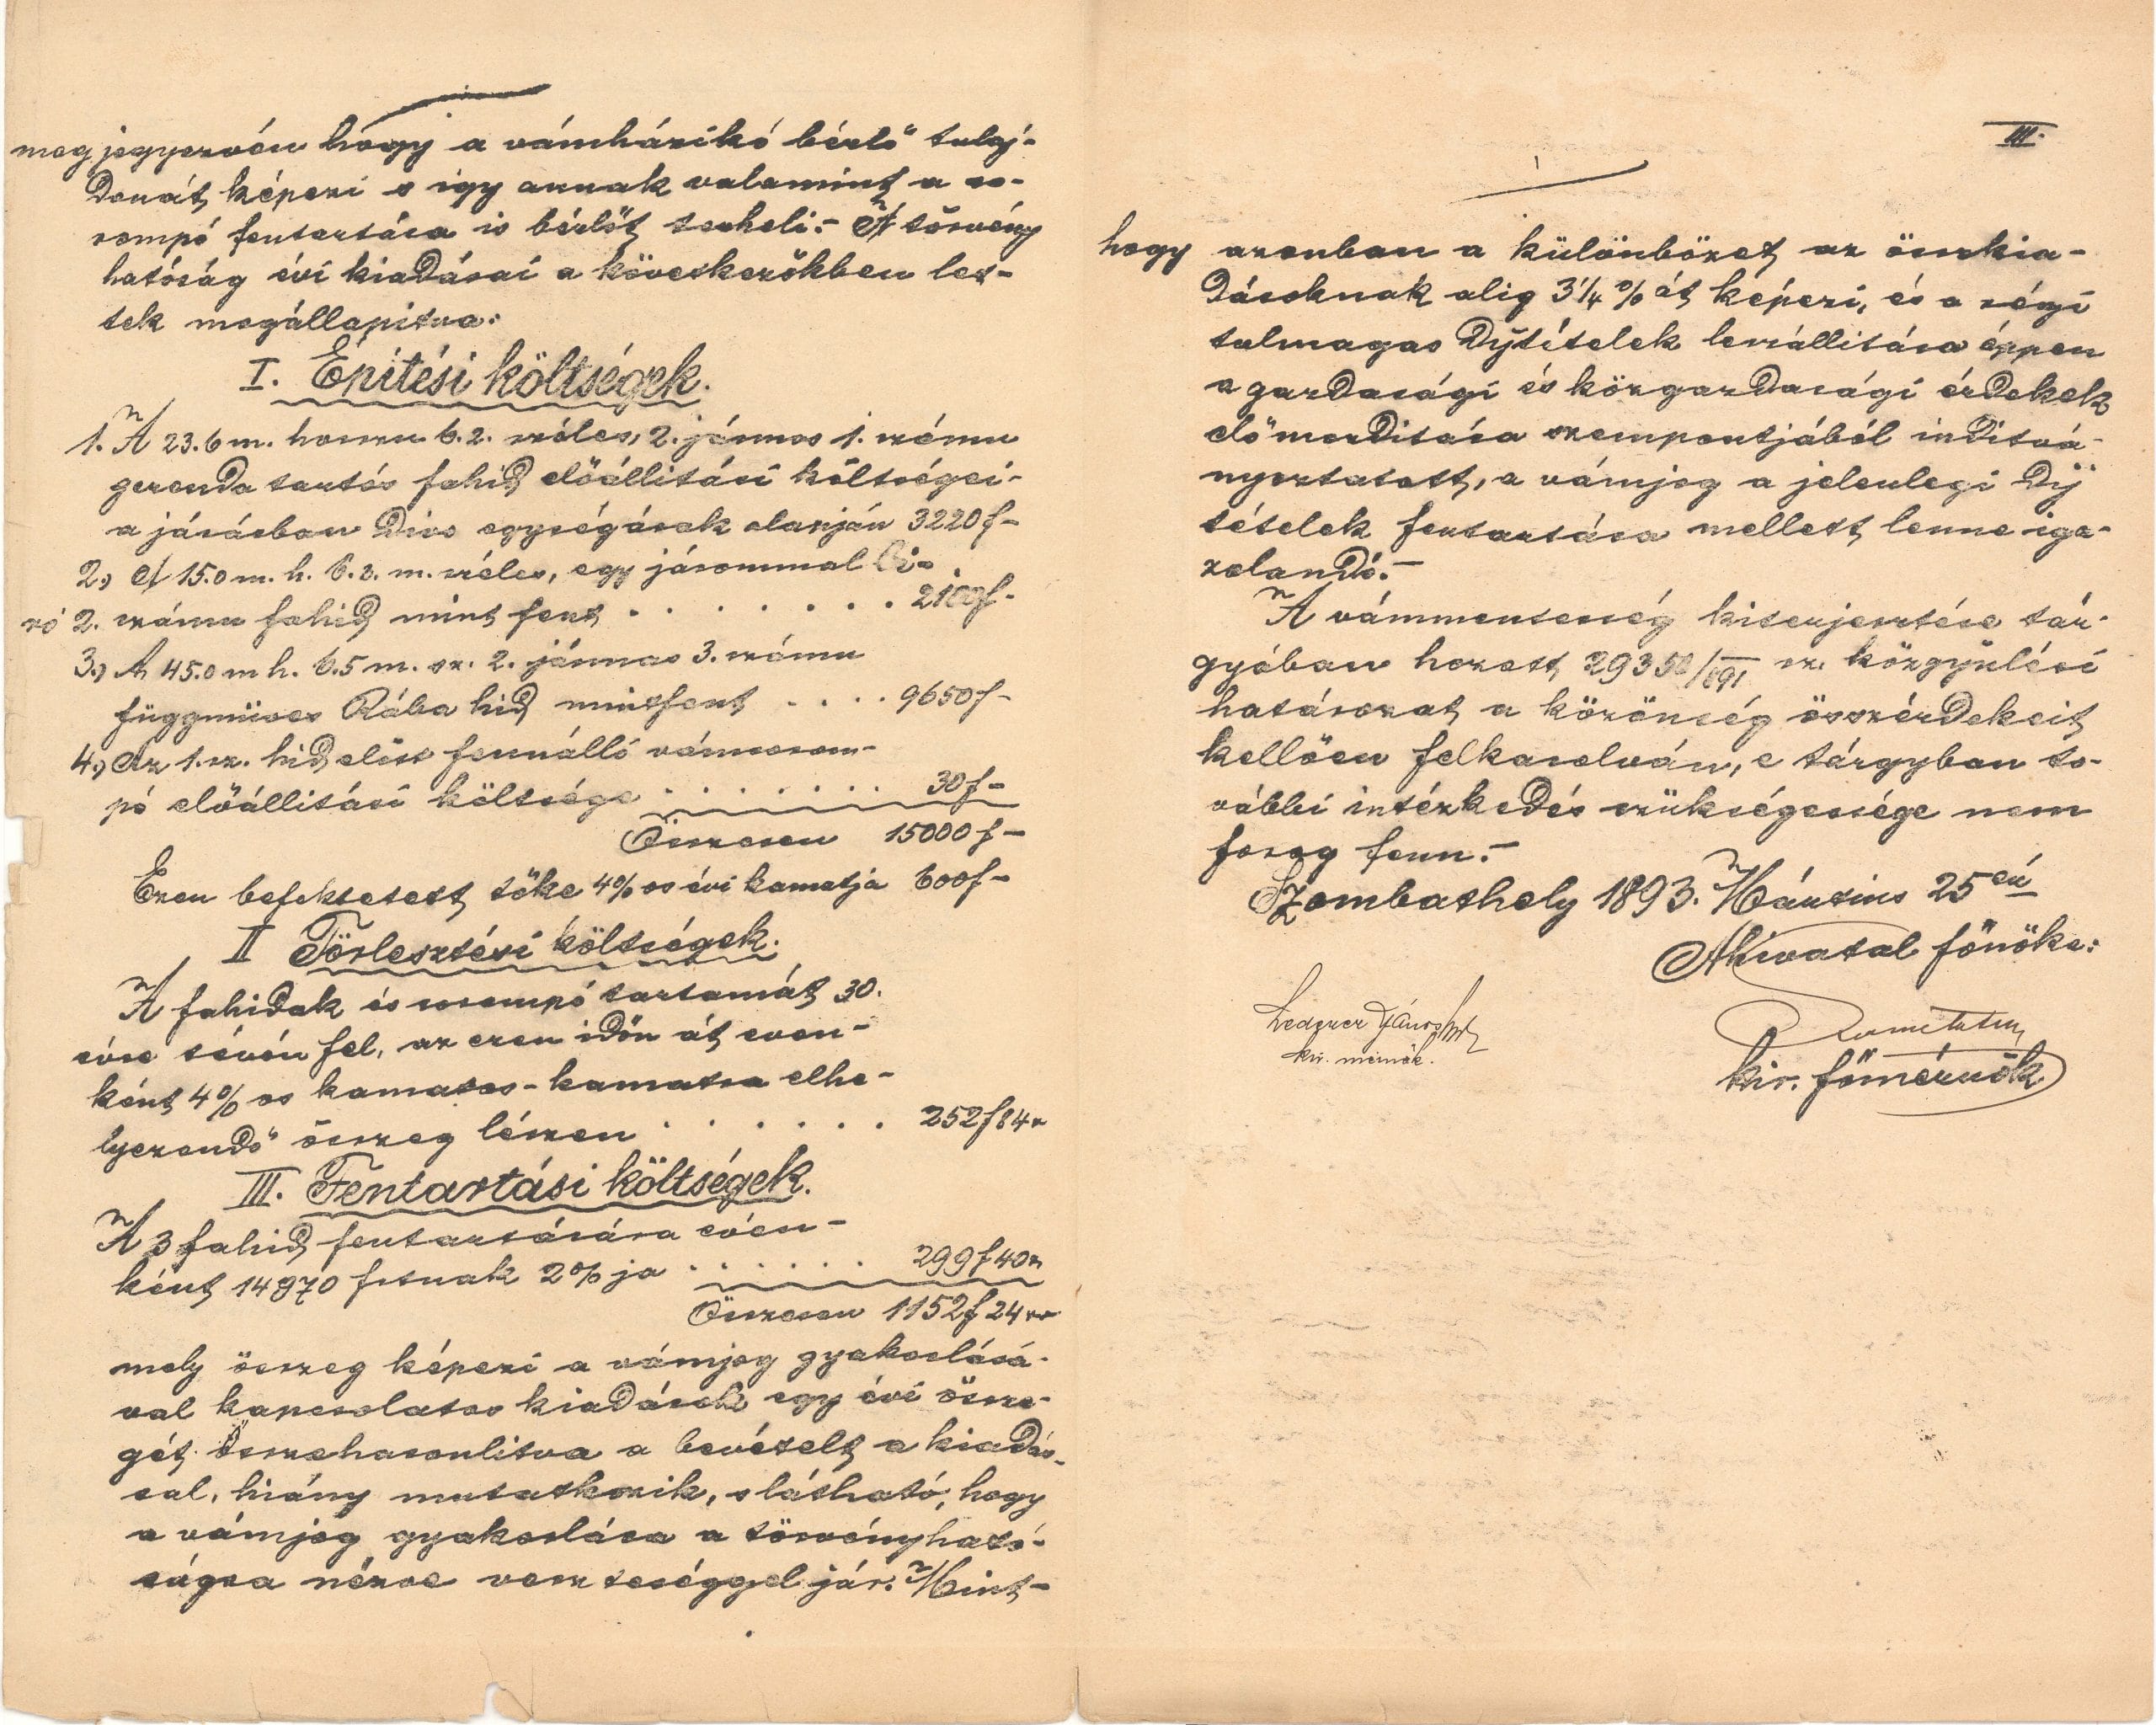 megjegyezvén hogy a vámházikó bérlő tulaj-
donát képezi s igy annak valamint a so-
rompó fentartása is bérlőt terheli.- A törvény
hatóság évi kiadásai a következőkben let-
tek megállapitva:
I. Épitési költségek.
1. A 23.6 m. hosszu 6.2. széles, 2. jármos 1. számu
gerenda tartós fahid előállitási költségei-
a járásban divó egységárak alapján 3220 f-
2.) A 15.0 m. h. 6.2. m. széles, egy járommal bi-
ró 2. számu fahid mint fent . . . . . . . . 2100 f-
3.) A 45.0 m h. 6.5 m. sz. 2. jármas 3. számu
függmüves Rába hid mint fent . . . . 9650 f-
4.) Az 1. sz. hid előtt fennálló vámsorom-
pó előállitási költsége . . . . . . . 30 f-
Összesen 15000 f-
Ezen befektetett tőke 4% os évi kamatja 600 f-
II Törlesztési költségek.
A fahidak és sorompó tartamát 30.
évre tévén fel, az ezen időn át even-
ként 4% os kamatos-kamatra elhe-
lyezendő összeg lészen . . . . . . 252 f 84 x
III. Fentartási költségek.
A 3 fahid fentartására évén-
ként 14970 frtnak 2% ja . . . . . . 299 f 40 x
Összesen 1152 f 24 xr
mely összeg képezi a vámjog gyakorlásá-
val kapcsolatos kiadások egy évi össze-
gét. Összehasonlitva a bevételt a kiadás-
sal, hiány mutatkozik, s látható, hogy
a vámjog gyakorlása a törvényható-
ságra nézve veszteséggel jár. Mint-
III.
hogy azonban a különbözet az összkia-
dásoknak alig 3 1/4 % át képezi, és a régi
tulmagas dijtételek leszállitása éppen
a gazdasági és közgazdasági érdekek
előmozditása szempontjából inditvá-
nyoztatott, a vámjog a jelenlegi dij
tételek fentartása mellett lenne iga-
zolandó.-
A vámmentesség kiterjesztése tár-
gyában hozott 29350/891 sz. közgyülési
határozat a közönség összérdekeit
kellően felkarolván, e tárgyban to-
vábbi intézkedés szükségessége nem
forog fenn.-
Szombathely 1893. Március 25 én
A hivatal főnöke:
Lederer János
kir. mérnök.
kir. főmérnök